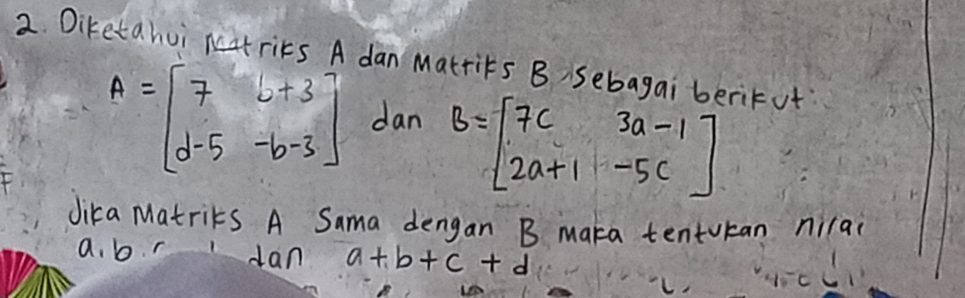 2. Diketahui Matriks A dan Matriks B sebagai berikut:
A = [ 7 b+3 ] dan B = [ 7C 3a-1 ]
[ d-5 -b-3 ] [ 2a+1 -5C ]
Jika Matriks A Sama dengan B maka tentukan nilai
a, b, dan a+b+c+d